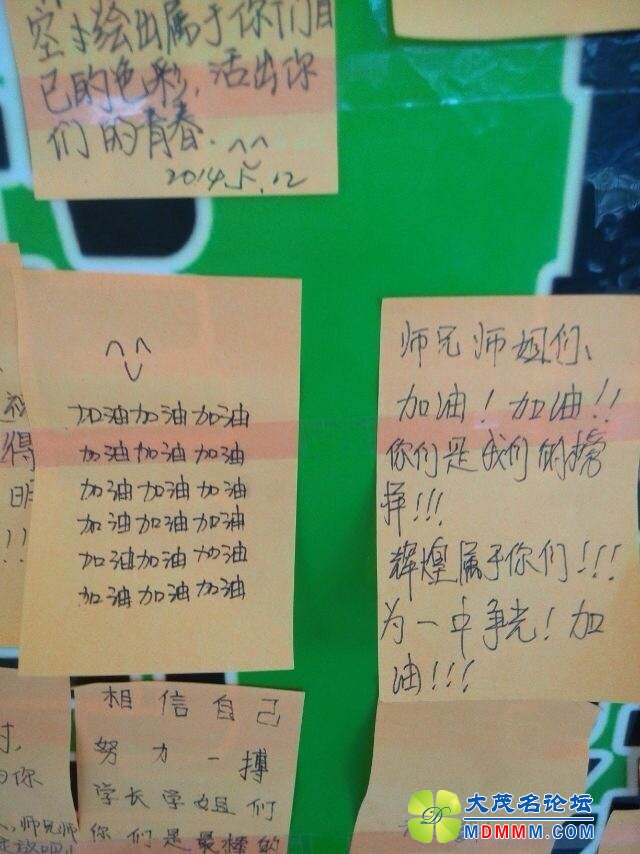 空才绘出属于你们自
己的色彩,活出你
们的青春.^^
2014.5.12
加油加油加油
加油加油加油
加油加油加油
加油加油加油
加油加油加油
加油加油加油
师兄师姐们、
加油!加油!!
你们是我们的榜
样!!!
辉煌属于你们!!!
为一中争光!加
油!!!
得
明
!!
相信自己
努力一搏
学长学姐们
你们是最棒的
你
师兄师
大茂名论坛
MDMMM.COM